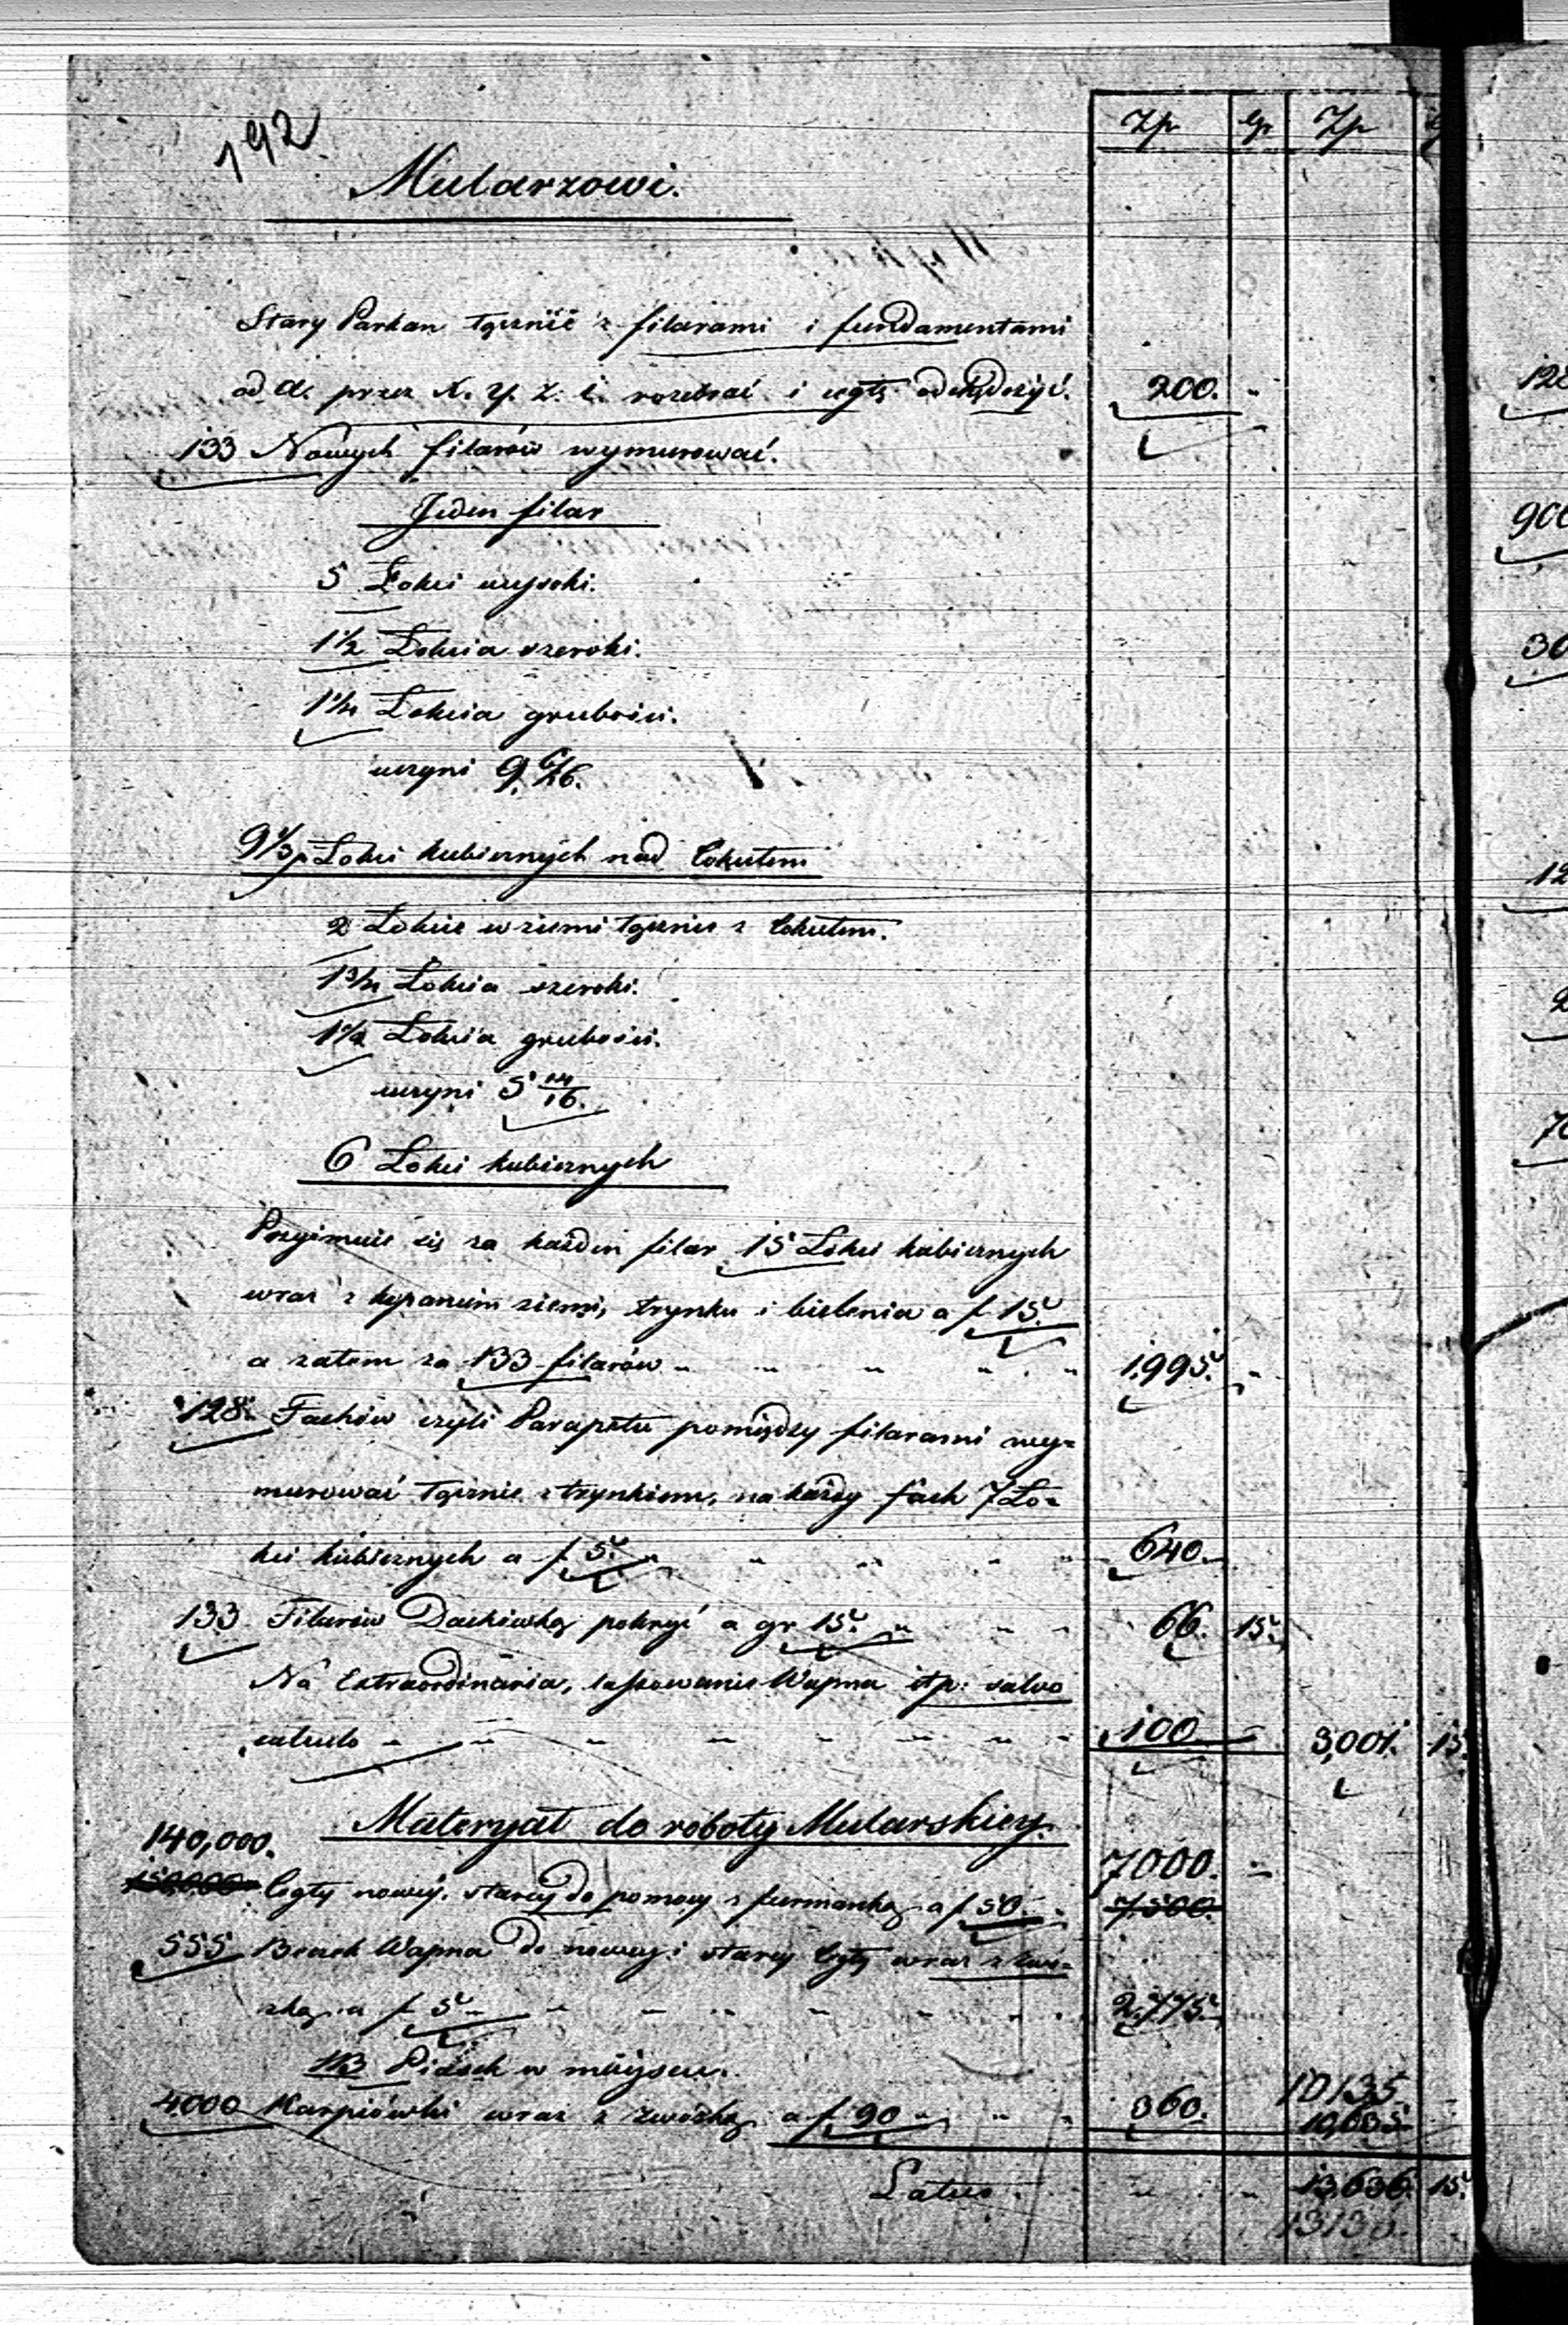 192
Zp. gr Zp
Mularzowi.
Stary Parkan łącznie z filarami i fundamentami
od a. przez X. Y. Z. rozebrać i cegłę odchędożyć. 200. "
133 Nowych filarów wymurować.
Jeden filar
5 Łokci wysoki.
1 1/2 Łokcia szeroki.
1 1/4 Łokcia grubości.
uczyni 9. 6/16.
9 1/3 Łokci kubicznych nad Cokułem
2 Łokcie w ziemi łącznie z Cokułem.
1 3/4 Łokcia szeroki.
1 1/2 Łokcia grubości.
uczyni 5 14/16.
6 Łokci kubicznych
Przyimuie się za każden filar 15 Łokci kubicznych
wraz z kopaniem ziemi, trynku i bielenia a f 15.
a zatem za 133 filarów " " " " " 1,995. "
128. Fachów czyli Parapetu pomiędzy filarami wy=
murować łącznie z trynkiem, na każdy fach 7 Ło=
kci kubicznych a f 5. " " " " " 640.
133. Filarów Dachówką pokryć a gr 15. " " " 66. 15.
Na Extraordinaria, lassowanie Wapna itp: salvo
calculo " " " " " " " 100 " 3,001. 15.
Materyał do roboty Mularskiey.
140,000. 7000. "
150,000 Cegły nowéy, starey do pomocy z furmanką a f 50. " 7,500.
555 Beczek Wapna do nowey i starey Cegły wraz z zwó=
zką a f 5 " " " " " " " 2,775.
NB Piasek w mieyscu.
10135
4000 Karpiówki wraz z zwózką a f 90 " " " 360. 10,635
Latus " " 13,636. 15.
13136.